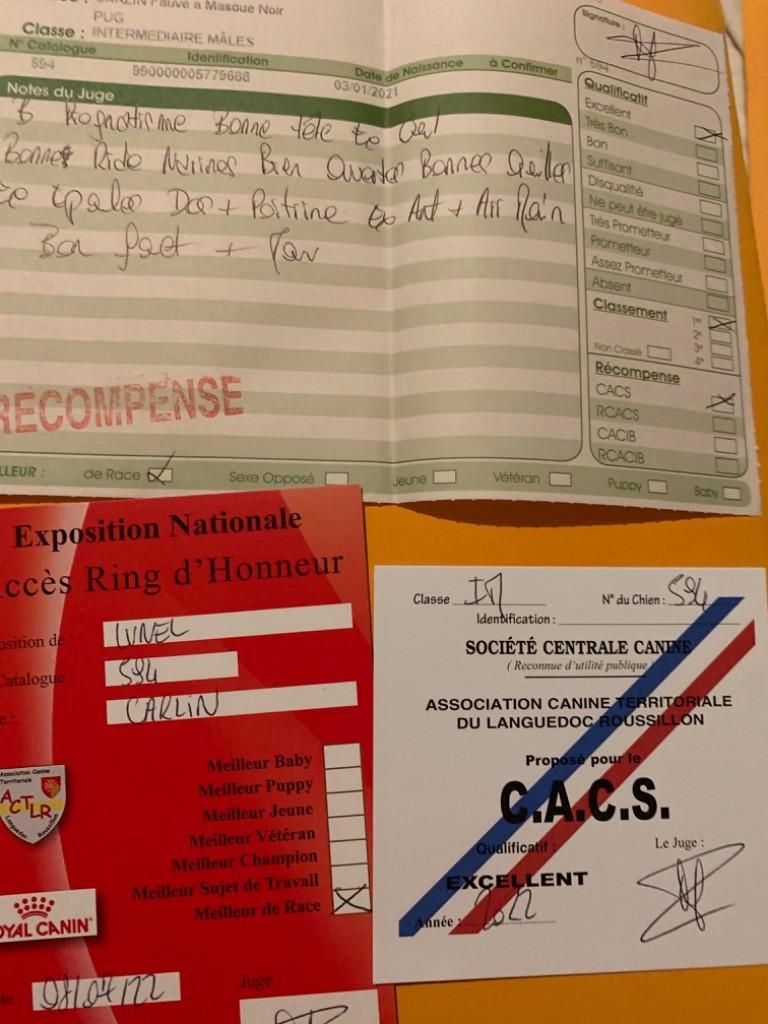 CARLIN Fauve à Masque Noir
PUG
Classe : INTERMEDIAIRE MÂLES
N° Catalogue Identification Date de Naissance à Confirmer
594 990000005779688 03/01/2021
Notes du Juge
B Bonne tête
Bonnes Ride Narines Bien Bonnes
Dos + Poitrine Ant + Arr
Bon +
RECOMPENSE
LLEUR : de Race Sexe Opposé Jeune Vétéran Puppy Baby
Signature :
n° 594
Qualificatif
Excellent
Très Bon
Bon
Suffisant
Disqualifié
Ne peut être jugé
Très Prometteur
Prometteur
Assez Prometteur
Absent
Classement
1er
2e
3e
Non Classé 4e
Récompense
CACS
RCACS
CACIB
RCACIB
Exposition Nationale
ccès Ring d'Honneur
osition de : LUNEL
Catalogue : 594
e : CARLIN
Meilleur Baby
Meilleur Puppy
Meilleur Jeune
Meilleur Vétéran
Meilleur Champion
Meilleur Sujet de Travail
Meilleur de Race
Association Canine
Territoriale
ACTLR
Languedoc Roussillon
OYAL CANIN
te : /07/22 Juge :
Classe N° du Chien : 594
Identification :
SOCIÉTÉ CENTRALE CANINE
( Reconnue d'utilité publique )
ASSOCIATION CANINE TERRITORIALE
DU LANGUEDOC ROUSSILLON
Proposé pour le
C.A.C.S.
Qualificatif : Le Juge :
EXCELLENT
Année : 2022